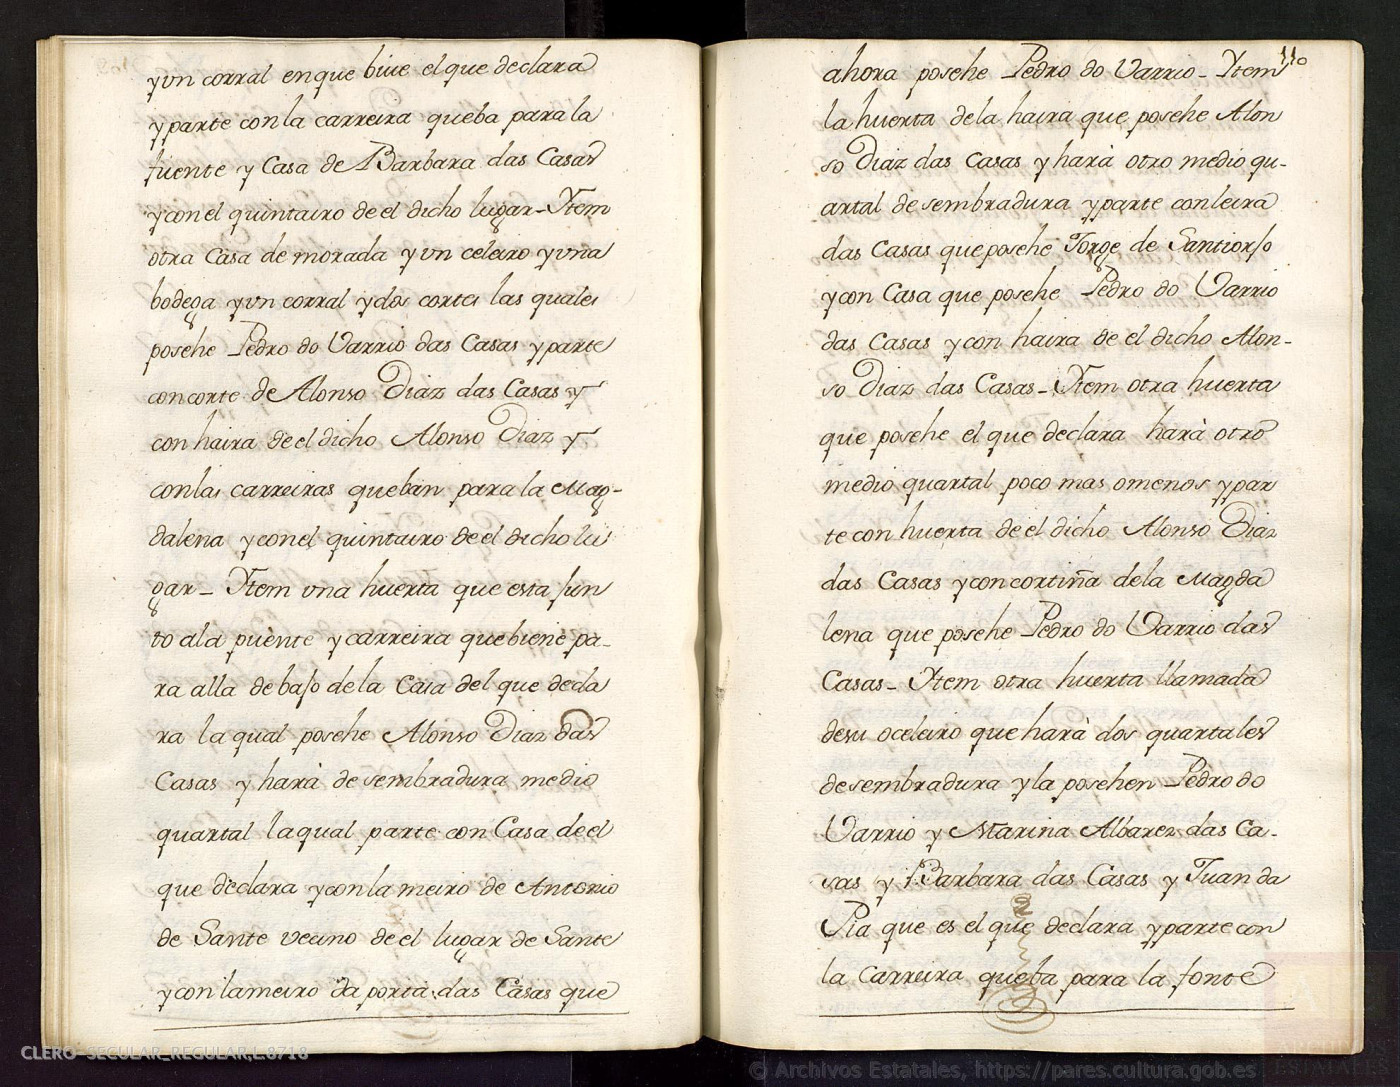 yvn corral enque biue elque declara
yparte conla carreira queba para la
fuente y Casa de Barbara das Casas
yconel quintairo de el dicho lugar - Ytem
otra Casa de morada y vn celeiro yvna
bodega yvn corral ydos cortes las quales
posehe Pedro do Varrio das Casas yparte
concorte de Alonso Diaz das Casas y
con haira de el dicho Alonso Diaz y
conlas carreiras queban para la Mag-
dalena yconel quintairo de el dicho lu
gar - Ytem vna huerta que esta jun
to ala puente y carreira quebiene pa-
ra alla debajo dela Casa del que decla
ra la qual posehe Alonso Diaz das
Casas y harà de sembradura medio
quartal laqual parte con Casa de el
que declara yconlameiro de Antonio
de Sante vecino de el lugar de Sante
yconlameiro da porta das Casas que
110
ahora posehe Pedro do Varrio - Ytem
la huerta dela haira que posehe Alon
so Diaz das Casas y harà otro medio qu-
artal de sembradura yparte conleira
das Casas queposehe Jorge de Santiorjo
ycon Casa que posehe Pedro do Varrio
das Casas ycon haira de el dicho Alon-
so Diaz das Casas - Ytem otra huerta
que posehe el que declara harà otro
medio quartal poco mas omenos ypar
te con huerta de el dicho Alonso Diaz
das Casas yconcortiña dela Magda
lena que posehe Pedro do Varrio das
Casas - Ytem otra huerta llamada
desu oceleiro que harà dos quartales
desembradura yla posehen Pedro do
Varrio y Marina Albarez das Ca-
sas y Barbara das Casas y Juan da
Pia que es el que declara yparte con
la Carreira queba para la fonte
CLERO-SECULAR_REGULAR,L.8718
© Archivos Estatales, https://pares.cultura.gob.es
ARCHIVOS
ESTATALES